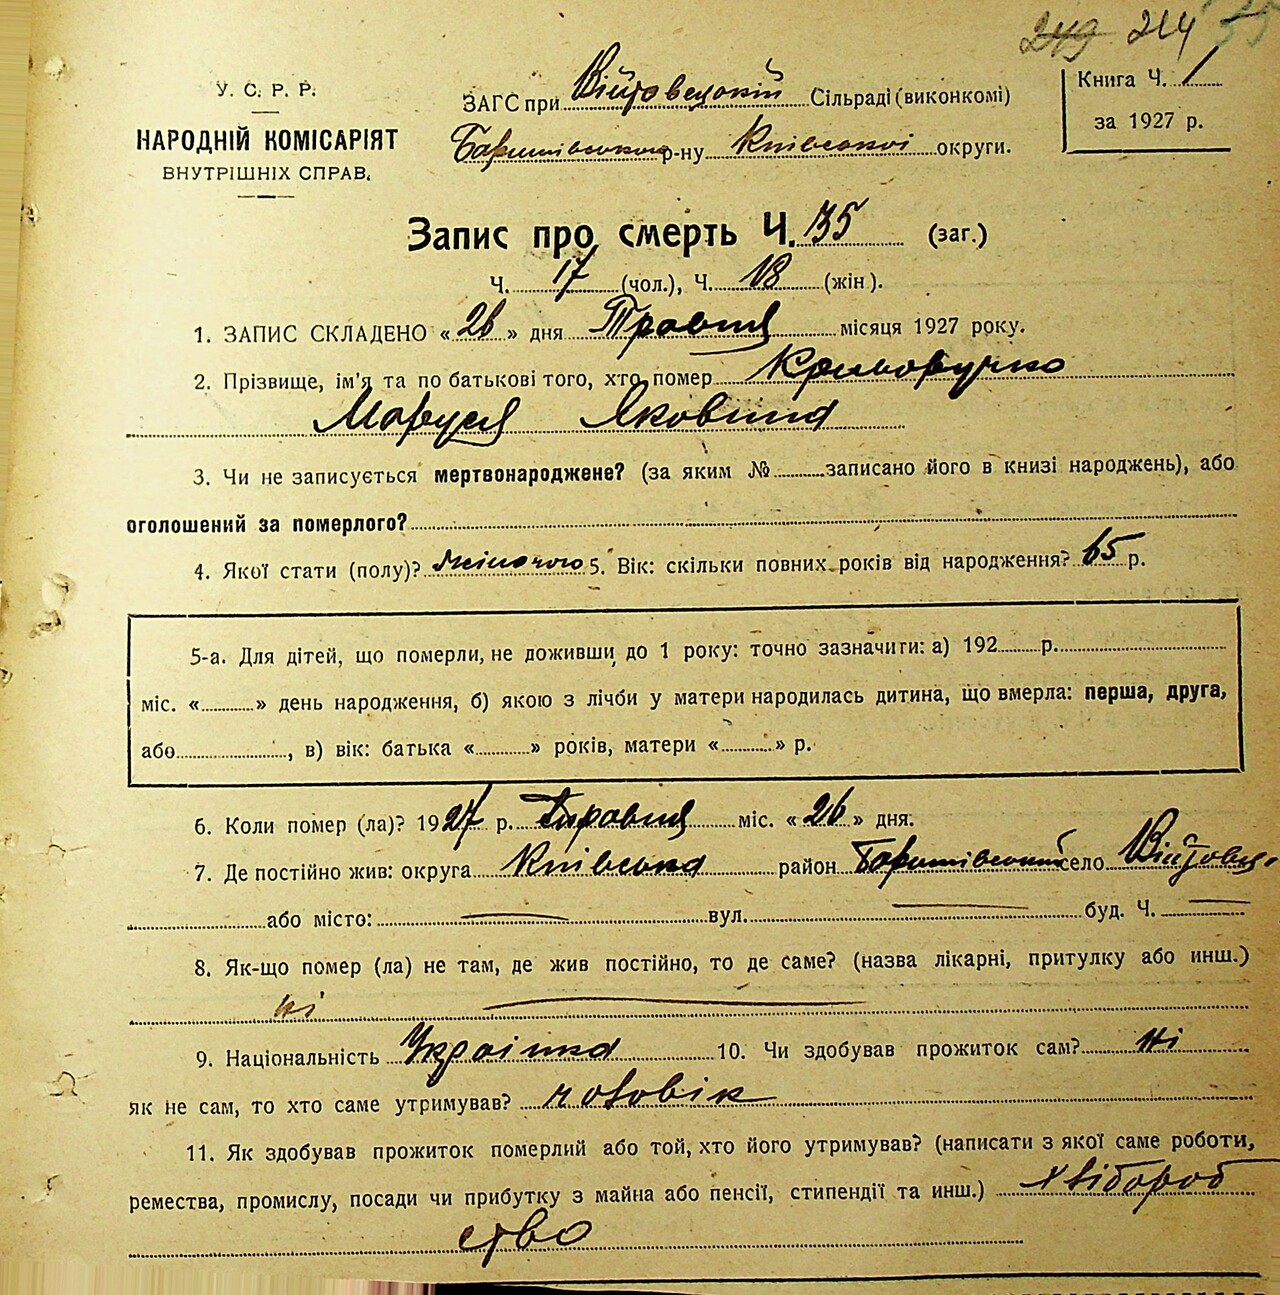 249 214 35
У. С. Р. Р.
НАРОДНІЙ КОМІСАРІЯТ
ВНУТРІШНІХ СПРАВ.
ЗАГС при Війтовецькій Сільраді (виконкомі)
Баришівського р-ну Київської округи.
Книга Ч. 1
за 1927 р.
Запис про смерть Ч. 35 (заг.)
Ч. 17 (чол.), Ч. 18 (жін).
1. ЗАПИС СКЛАДЕНО «26» дня Травня місяця 1927 року.
2. Прізвище, ім'я та по батькові того, хто помер Криворучко
Маруся Яковина
3. Чи не записується мертвонароджене? (за яким № записано його в книзі народжень), або
оголошений за померлого?
4. Якої стати (полу)? жіночого 5. Вік: скільки повних років від народження? 65 р.
5-а. Для дітей, що померли, не доживши до 1 року: точно зазначити: а) 192 р.
міс. « » день народження, б) якою з лічби у матери народилась дитина, що вмерла: перша, друга,
або , в) вік: батька « » років, матери « » р.
6. Коли помер (ла)? 1927 р. Травня міс. «26» дня.
7. Де постійно жив: округа Київська район Баришівський село Війтовці
або місто: — вул. — буд. Ч. —
8. Як-що помер (ла) не там, де жив постійно, то де саме? (назва лікарні, притулку або инш.)
ні —
9. Національність Українка 10. Чи здобував прожиток сам? ні
як не сам, то хто саме утримував? чоловік
11. Як здобував прожиток померлий або той, хто його утримував? (написати з якої саме роботи,
ремества, промислу, посади чи прибутку з майна або пенсії, стипендії та инш.) хвібороб
ство